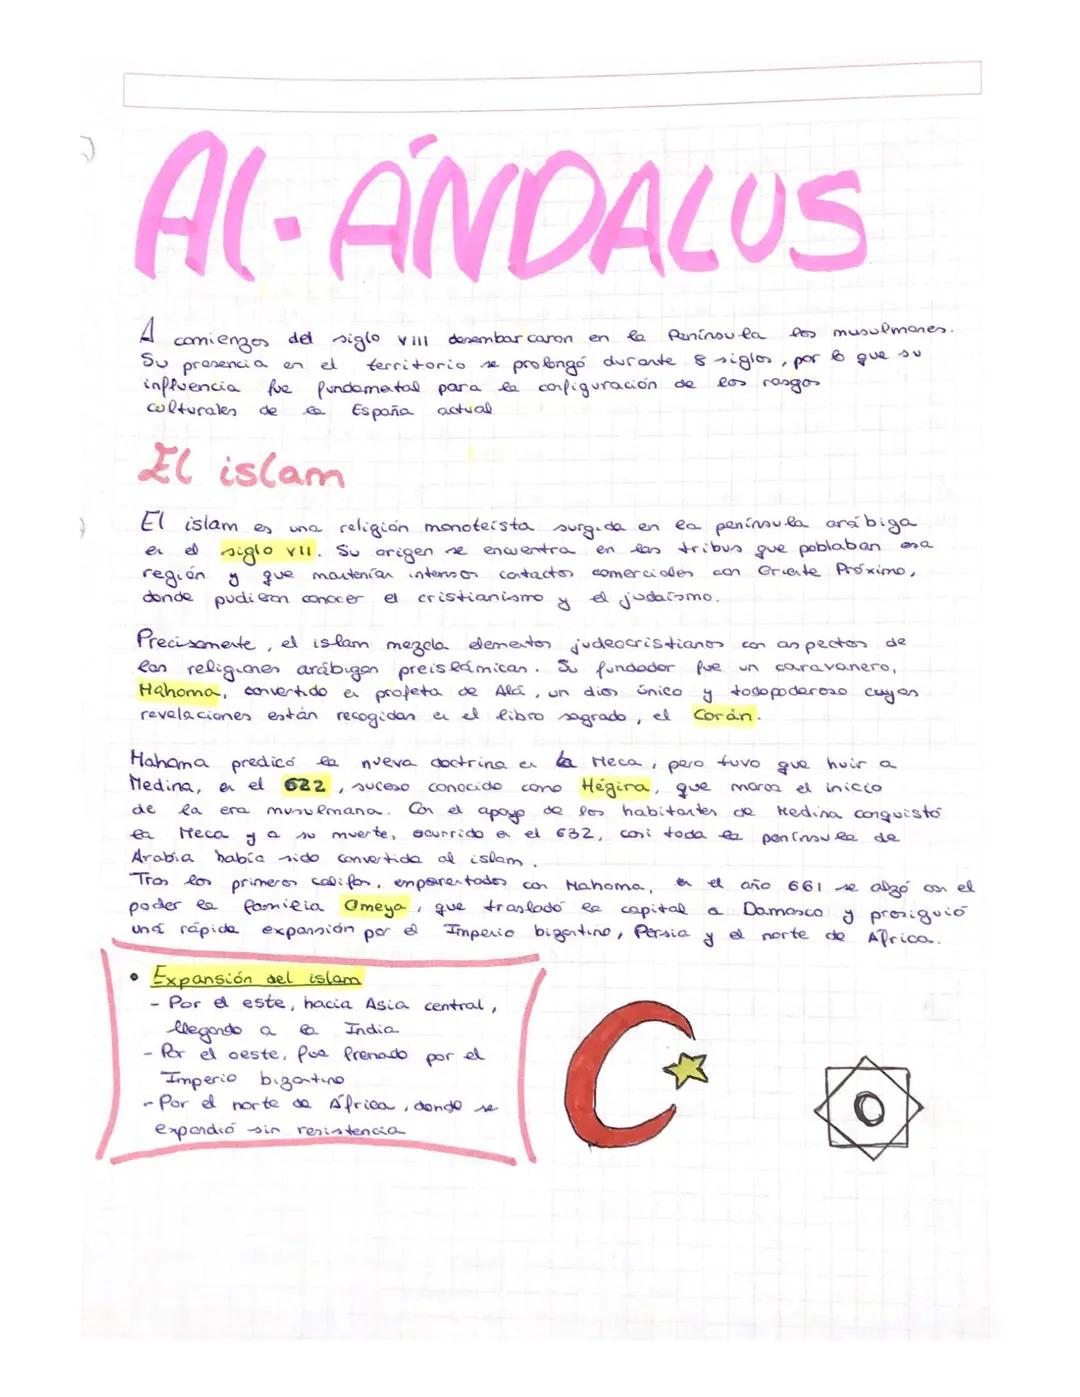 Al-ÁNDALUS
A comienzos del siglo VIII desembarcaron en la Península los musulmanes.
Su presencia en el territorio se prolongó durante 8 siglos, por lo que su
influencia fue fundamental para la configuración de los rasgos
culturales de la España actual
El islam
El islam es una religión monoteísta surgida en la península arábiga
en el siglo VII. Su origen se encuentra en las tribus que poblaban esa
región y que mantenían intensos contactos comerciales con Oriente Próximo,
donde pudieron conocer el cristianismo y el judaísmo.
Precisamente, el islam mezcla elementos judeocristianos con aspectos de
las religiones arábigas preislámicas. Su fundador fue un caravanero,
Mahoma, convertido en profeta de Alá, un dios único y todopoderoso cuyas
revelaciones están recogidas en el libro sagrado, el Corán.
Mahoma predicó la nueva doctrina en la Meca, pero tuvo que huir a
Medina, en el 622, suceso conocido como Hégira, que marca el inicio
de la era musulmana. Con el apoyo de los habitantes de Medina conquistó
la Meca y a su muerte, ocurrido en el 632, casi toda la península de
Arabia había sido convertida al islam.
Tras los primeros califas, emparentados con Mahoma, en el año 661 se alzó con el
poder la familia Omeya, que trasladó la capital a Damasco y prosiguió
una rápida expansión por el Imperio bizantino, Persia y el norte de África.
• Expansión del islam
- Por el este, hacia Asia central,
llegando a la India
- Por el oeste, fue frenado por el
Imperio bizantino
- Por el norte de África, donde se
expandió sin resistencia